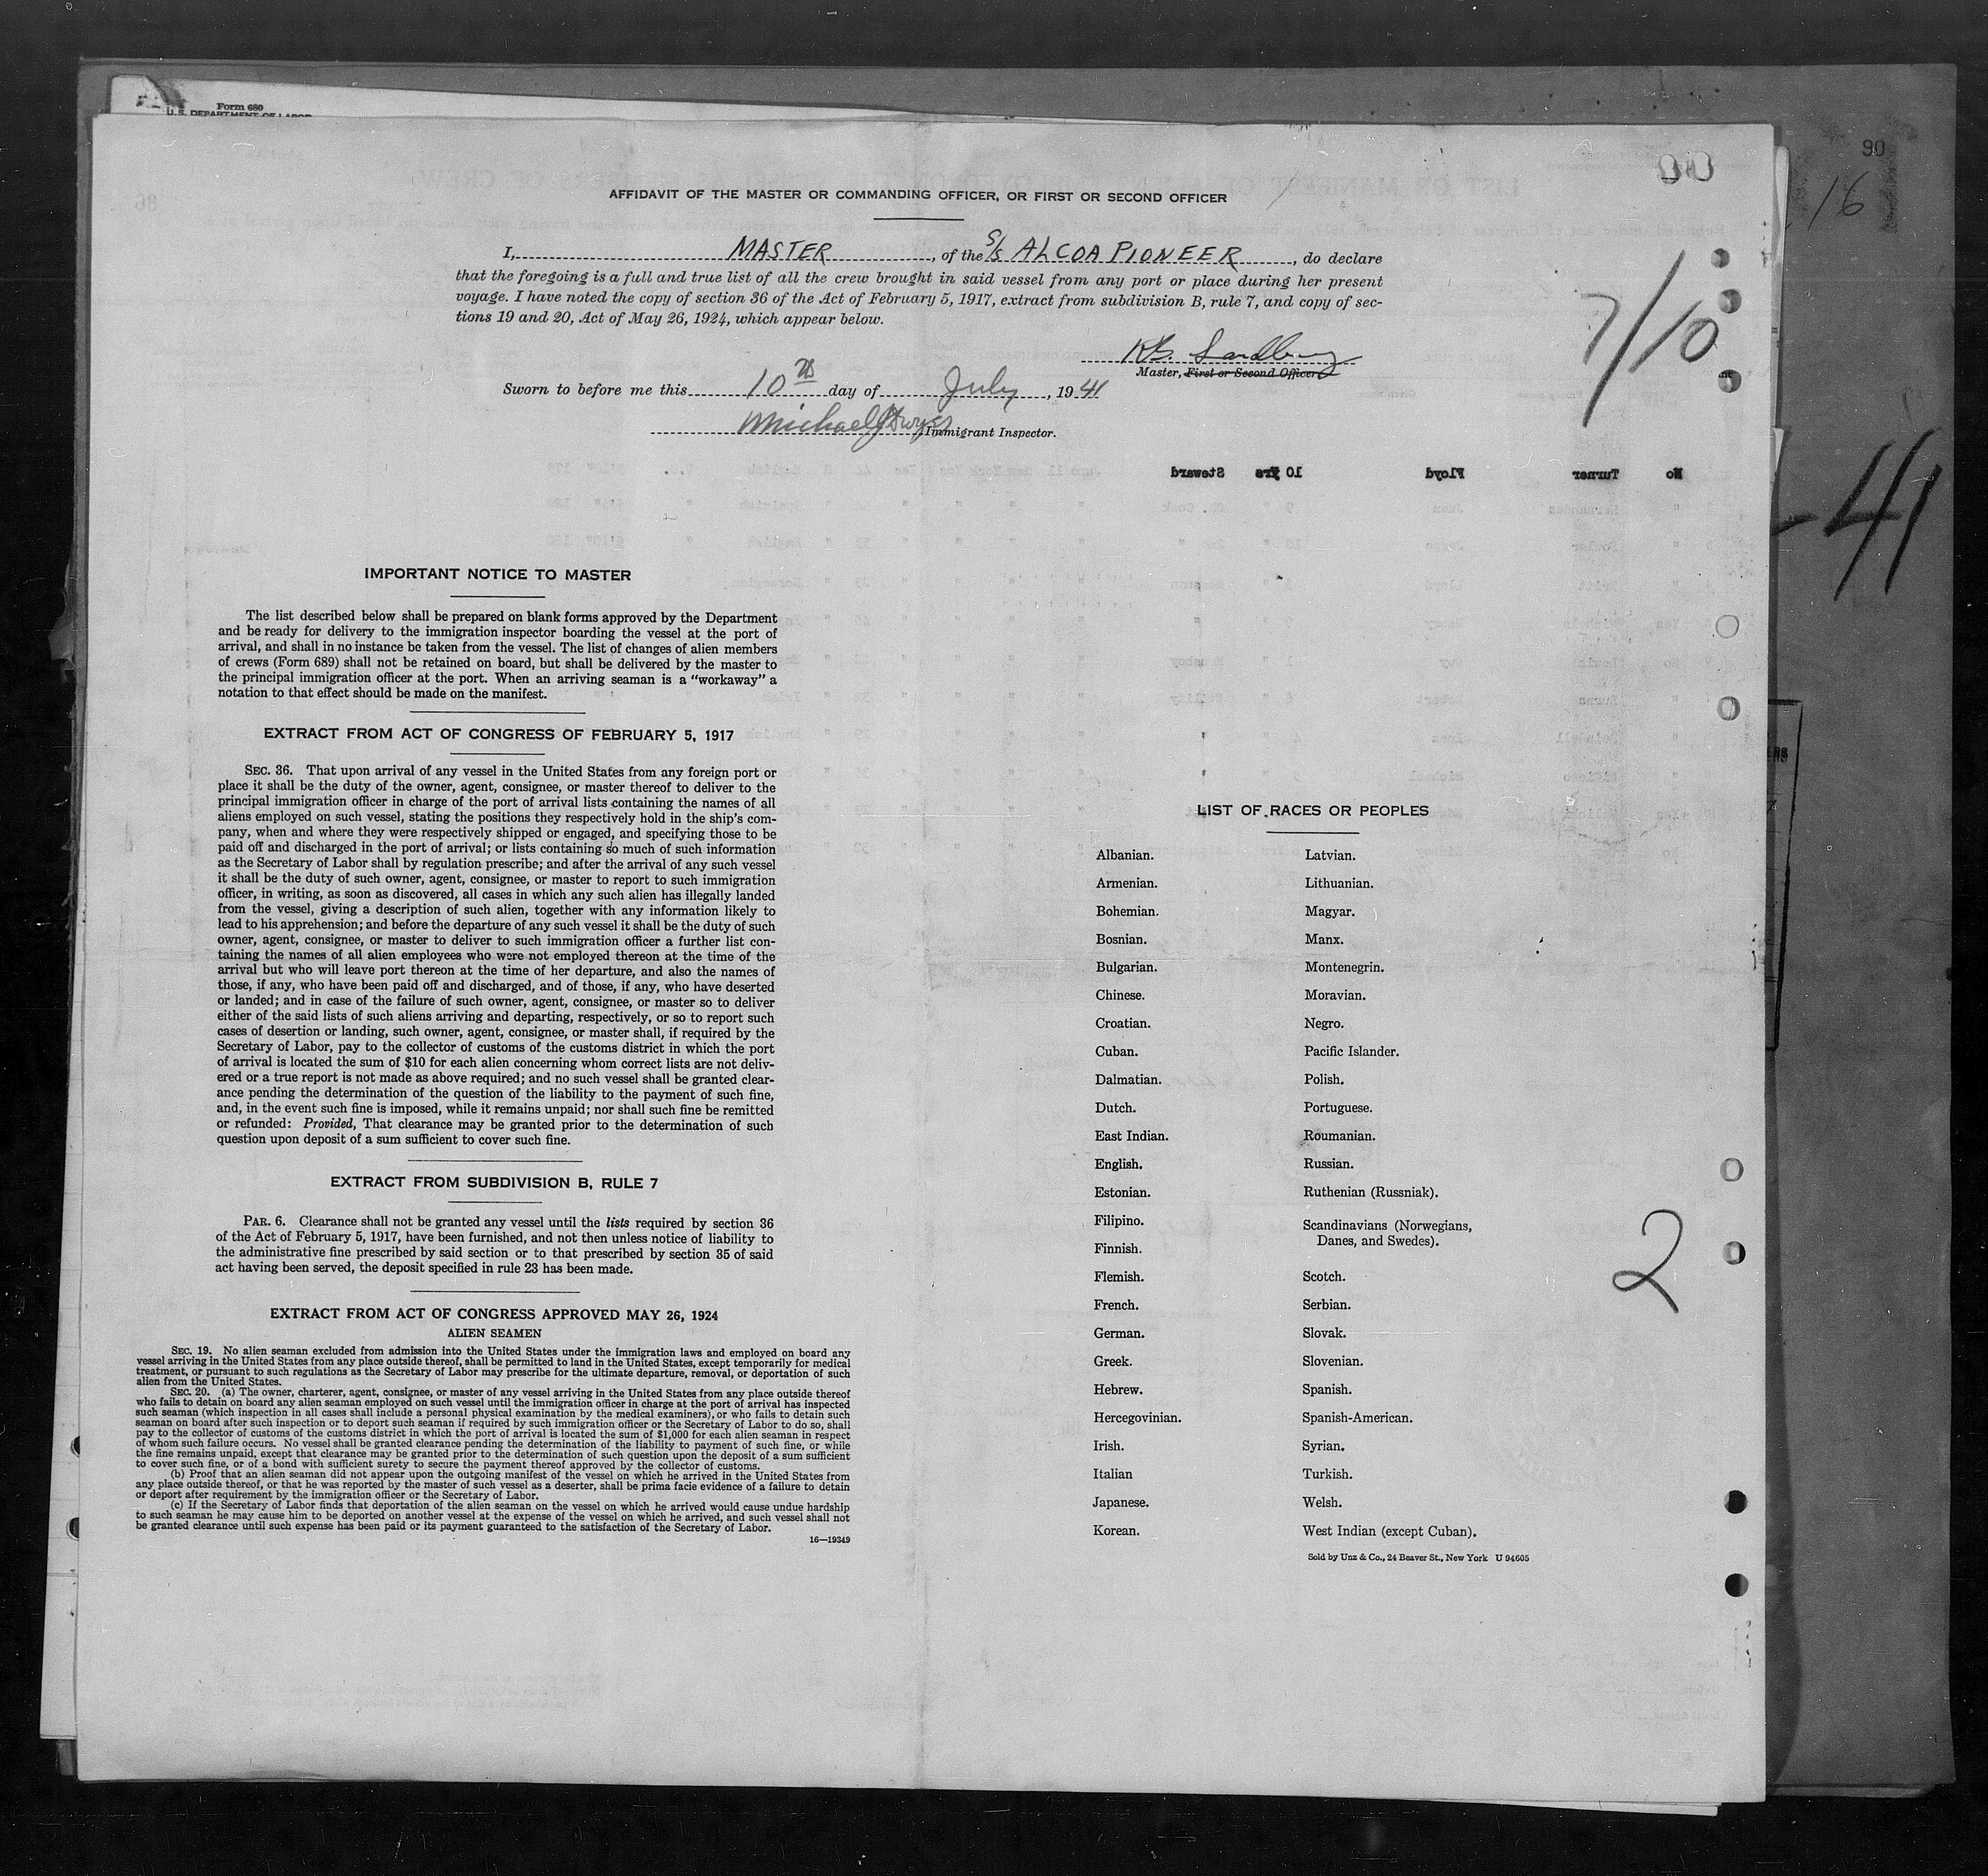 Form 680
U.S. DEPARTMENT OF LABOR
90
16
AFFIDAVIT OF THE MASTER OR COMMANDING OFFICER, OR FIRST OR SECOND OFFICER
I, MASTER, of the S/S ALCOA PIONEER, do declare
that the foregoing is a full and true list of all the crew brought in said vessel from any port or place during her present
voyage. I have noted the copy of section 36 of the Act of February 5, 1917, extract from subdivision B, rule 7, and copy of sec-
tions 19 and 20, Act of May 26, 1924, which appear below.
7/10
Master, First or Second Officer.
Sworn to before me this 10th day of July, 1941
Michael
Immigrant Inspector.
No Turner Floyd 10 Yrs Steward
-41
IMPORTANT NOTICE TO MASTER
The list described below shall be prepared on blank forms approved by the Department
and be ready for delivery to the immigration inspector boarding the vessel at the port of
arrival, and shall in no instance be taken from the vessel. The list of changes of alien members
of crews (Form 689) shall not be retained on board, but shall be delivered by the master to
the principal immigration officer at the port. When an arriving seaman is a “workaway” a
notation to that effect should be made on the manifest.
EXTRACT FROM ACT OF CONGRESS OF FEBRUARY 5, 1917
SEC. 36. That upon arrival of any vessel in the United States from any foreign port or
place it shall be the duty of the owner, agent, consignee, or master thereof to deliver to the
principal immigration officer in charge of the port of arrival lists containing the names of all
aliens employed on such vessel, stating the positions they respectively hold in the ship's com-
pany, when and where they were respectively shipped or engaged, and specifying those to be
paid off and discharged in the port of arrival; or lists containing so much of such information
as the Secretary of Labor shall by regulation prescribe; and after the arrival of any such vessel
it shall be the duty of such owner, agent, consignee, or master to report to such immigration
officer, in writing, as soon as discovered, all cases in which any such alien has illegally landed
from the vessel, giving a description of such alien, together with any information likely to
lead to his apprehension; and before the departure of any such vessel it shall be the duty of such
owner, agent, consignee, or master to deliver to such immigration officer a further list con-
taining the names of all alien employees who were not employed thereon at the time of the
arrival but who will leave port thereon at the time of her departure, and also the names of
those, if any, who have been paid off and discharged, and of those, if any, who have deserted
or landed; and in case of the failure of such owner, agent, consignee, or master so to deliver
either of the said lists of such aliens arriving and departing, respectively, or so to report such
cases of desertion or landing, such owner, agent, consignee, or master shall, if required by the
Secretary of Labor, pay to the collector of customs of the customs district in which the port
of arrival is located the sum of $10 for each alien concerning whom correct lists are not deliv-
ered or a true report is not made as above required; and no such vessel shall be granted clear-
ance pending the determination of the question of the liability to the payment of such fine,
and, in the event such fine is imposed, while it remains unpaid; nor shall such fine be remitted
or refunded: Provided, That clearance may be granted prior to the determination of such
question upon deposit of a sum sufficient to cover such fine.
EXTRACT FROM SUBDIVISION B, RULE 7
PAR. 6. Clearance shall not be granted any vessel until the lists required by section 36
of the Act of February 5, 1917, have been furnished, and not then unless notice of liability to
the administrative fine prescribed by said section or to that prescribed by section 35 of said
act having been served, the deposit specified in rule 23 has been made.
EXTRACT FROM ACT OF CONGRESS APPROVED MAY 26, 1924
ALIEN SEAMEN
SEC. 19. No alien seaman excluded from admission into the United States under the immigration laws and employed on board any
vessel arriving in the United States from any place outside thereof, shall be permitted to land in the United States, except temporarily for medical
treatment, or pursuant to such regulations as the Secretary of Labor may prescribe for the ultimate departure, removal, or deportation of such
alien from the United States.
SEC. 20. (a) The owner, charterer, agent, consignee, or master of any vessel arriving in the United States from any place outside thereof
who fails to detain on board any alien seaman employed on such vessel until the immigration officer in charge at the port of arrival has inspected
such seaman (which inspection in all cases shall include a personal physical examination by the medical examiners), or who fails to detain such
seaman on board after such inspection or to deport such seaman if required by such immigration officer or the Secretary of Labor to do so, shall
pay to the collector of customs of the customs district in which the port of arrival is located the sum of $1,000 for each alien seaman in respect
of whom such failure occurs. No vessel shall be granted clearance pending the determination of the liability to payment of such fine, or while
the fine remains unpaid, except that clearance may be granted prior to the determination of such question upon the deposit of a sum sufficient
to cover such fine, or of a bond with sufficient surety to secure the payment thereof approved by the collector of customs.
(b) Proof that an alien seaman did not appear upon the outgoing manifest of the vessel on which he arrived in the United States from
any place outside thereof, or that he was reported by the master of such vessel as a deserter, shall be prima facie evidence of a failure to detain
or deport after requirement by the immigration officer or the Secretary of Labor.
(c) If the Secretary of Labor finds that deportation of the alien seaman on the vessel on which he arrived would cause undue hardship
to such seaman he may cause him to be deported on another vessel at the expense of the vessel on which he arrived, and such vessel shall not
be granted clearance until such expense has been paid or its payment guaranteed to the satisfaction of the Secretary of Labor.
16—19349
LIST OF RACES OR PEOPLES
Albanian.
Armenian.
Bohemian.
Bosnian.
Bulgarian.
Chinese.
Croatian.
Cuban.
Dalmatian.
Dutch.
East Indian.
English.
Estonian.
Filipino.
Finnish.
Flemish.
French.
German.
Greek.
Hebrew.
Hercegovinian.
Irish.
Italian
Japanese.
Korean.
Latvian.
Lithuanian.
Magyar.
Manx.
Montenegrin.
Moravian.
Negro.
Pacific Islander.
Polish.
Portuguese.
Roumanian.
Russian.
Ruthenian (Russniak).
Scandinavians (Norwegians,
Danes, and Swedes).
Scotch.
Serbian.
Slovak.
Slovenian.
Spanish.
Spanish-American.
Syrian.
Turkish.
Welsh.
West Indian (except Cuban).
Sold by Unz & Co., 24 Beaver St., New York U 94605
2